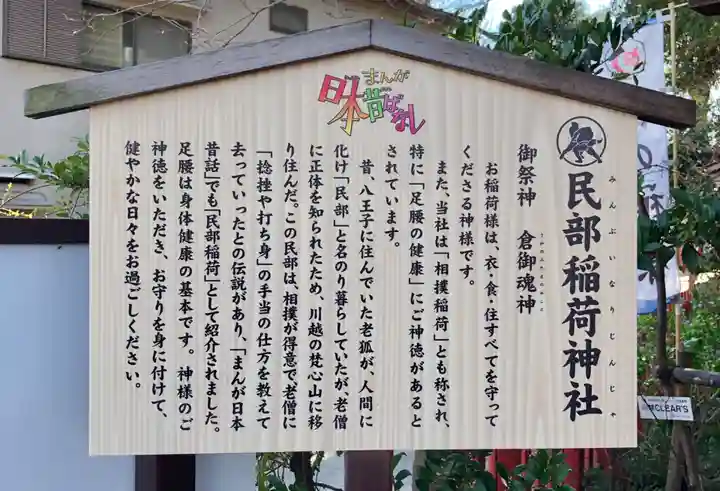 まんが
日本昔ばなし
民部稲荷神社
みんぶいなりじんじゃ
御祭神 倉御魂神
うかのみたまのみこと
お稲荷様は、衣・食・住すべてを守って
くださる神様です。
また、当社は「相撲稲荷」とも称され、
特に「足腰の健康」にご神徳があると
されています。
昔、八王子に住んでいた老狐が、人間に
化け「民部」と名のり暮らしていたが老僧
に正体を知られたため、川越の梵心山に移
り住んだ。この民部は、相撲が得意で老僧に
「捻挫や打ち身」の手当の仕方を教えて
去っていったとの伝説があり、「まんが日本
昔話」でも「民部稲荷」として紹介されました。
足腰は身体健康の基本です。神様のご
神徳をいただき、お守りを身に付けて、
健やかな日々をお過ごしください。
CLEAR'S